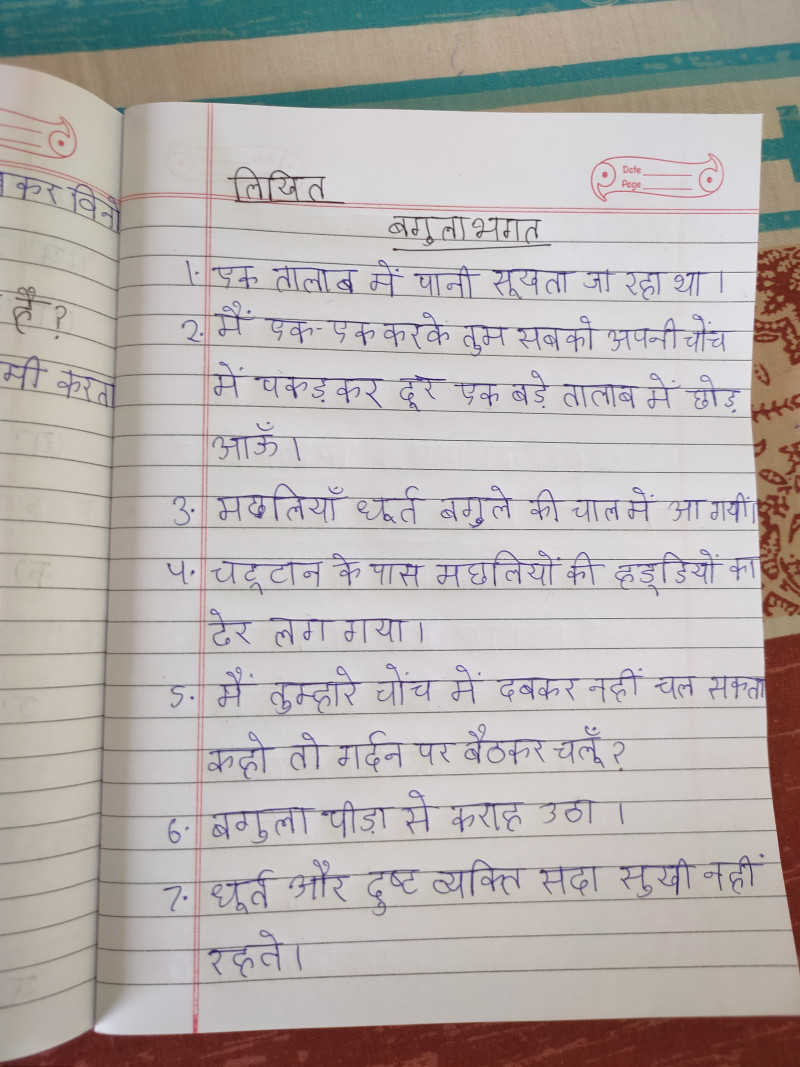 कर विनो
है?
मी करता
Date
Page
लिखित
बगुला भगत
1. एक तालाब में पानी सूखता जा रहा था।
2. मैं एक-एक करके तुम सबको अपनी चोंच
में पकड़कर दूर एक बड़े तालाब में छोड़
आऊँ।
3. मछलियाँ धूर्त बगुले की चाल में आ गयीं।
4. चट्टान के पास मछलियों की हड्डियों का
ढेर लग गया।
5. मैं तुम्हारे चोंच में दबकर नहीं चल सकता
कहो तो गर्दन पर बैठकर चलूँ?
6. बगुला पीड़ा से कराह उठा।
7. धूर्त और दुष्ट व्यक्ति सदा सुखी नहीं
रहते।